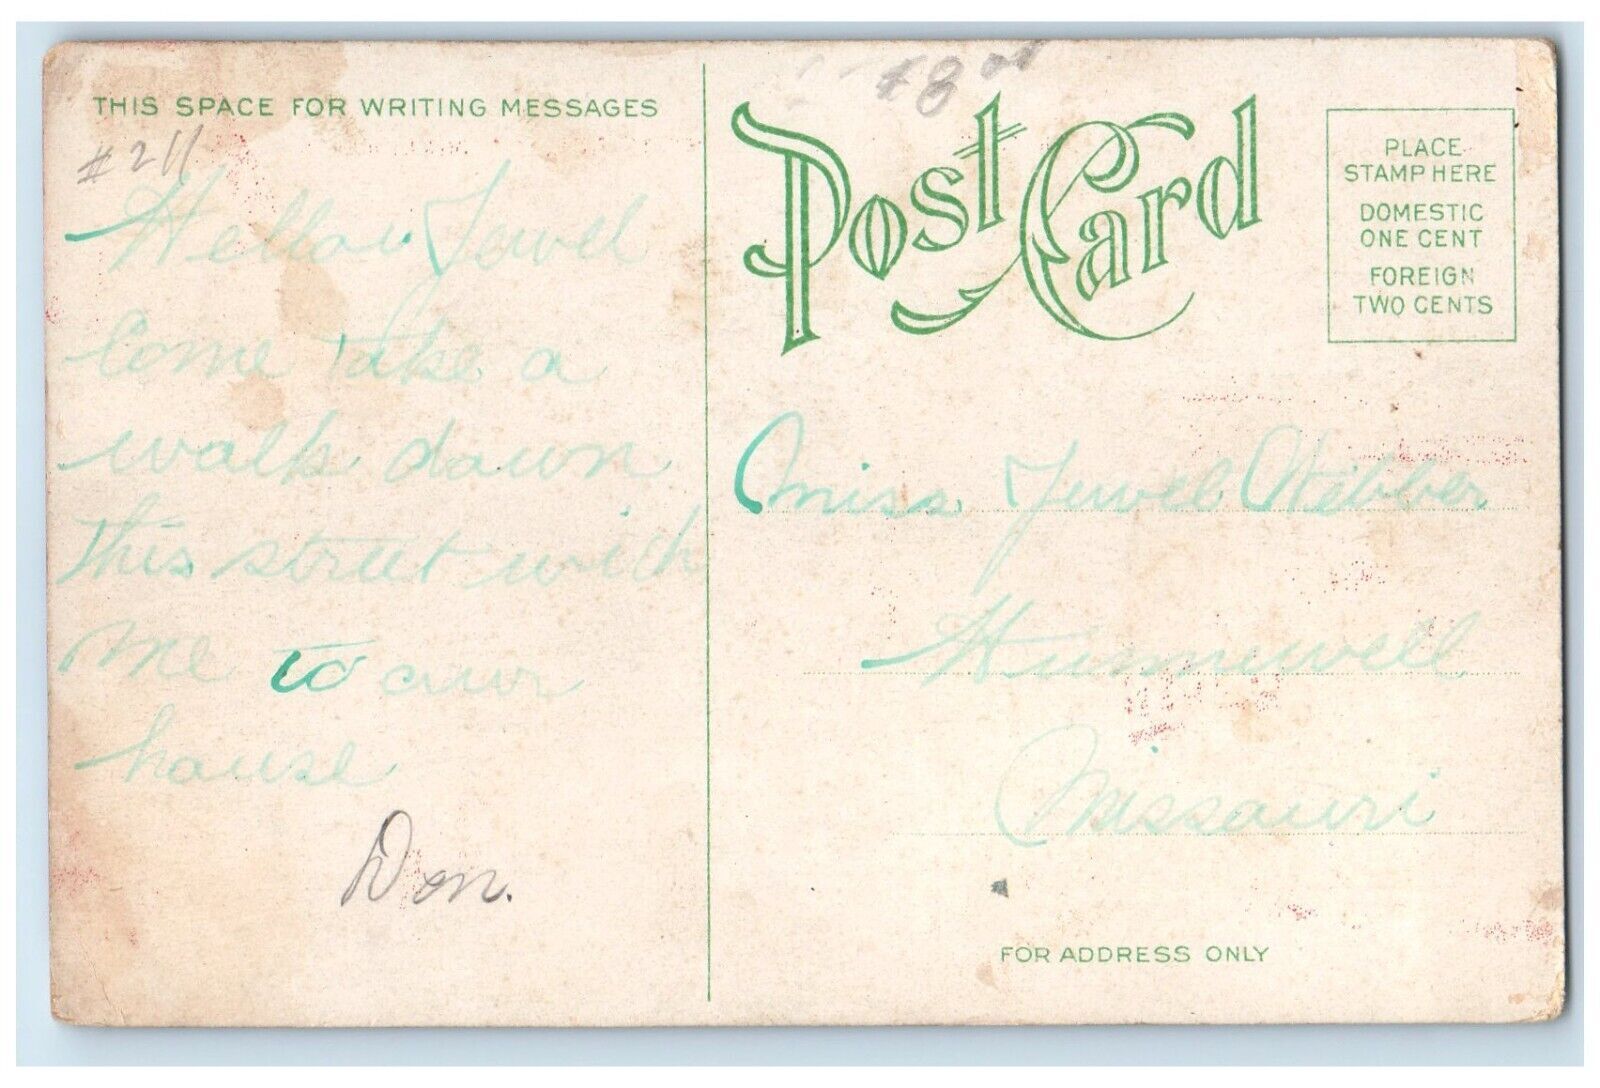 THIS SPACE FOR WRITING MESSAGES
#211
Hellow Jewel
Come take a
walk down
this street with
me to our
house
Don.
$8.00
Post Card
PLACE
STAMP HERE
DOMESTIC
ONE CENT
FOREIGN
TWO CENTS
Miss Jewel Webber
Hunnewell
Missouri
FOR ADDRESS ONLY